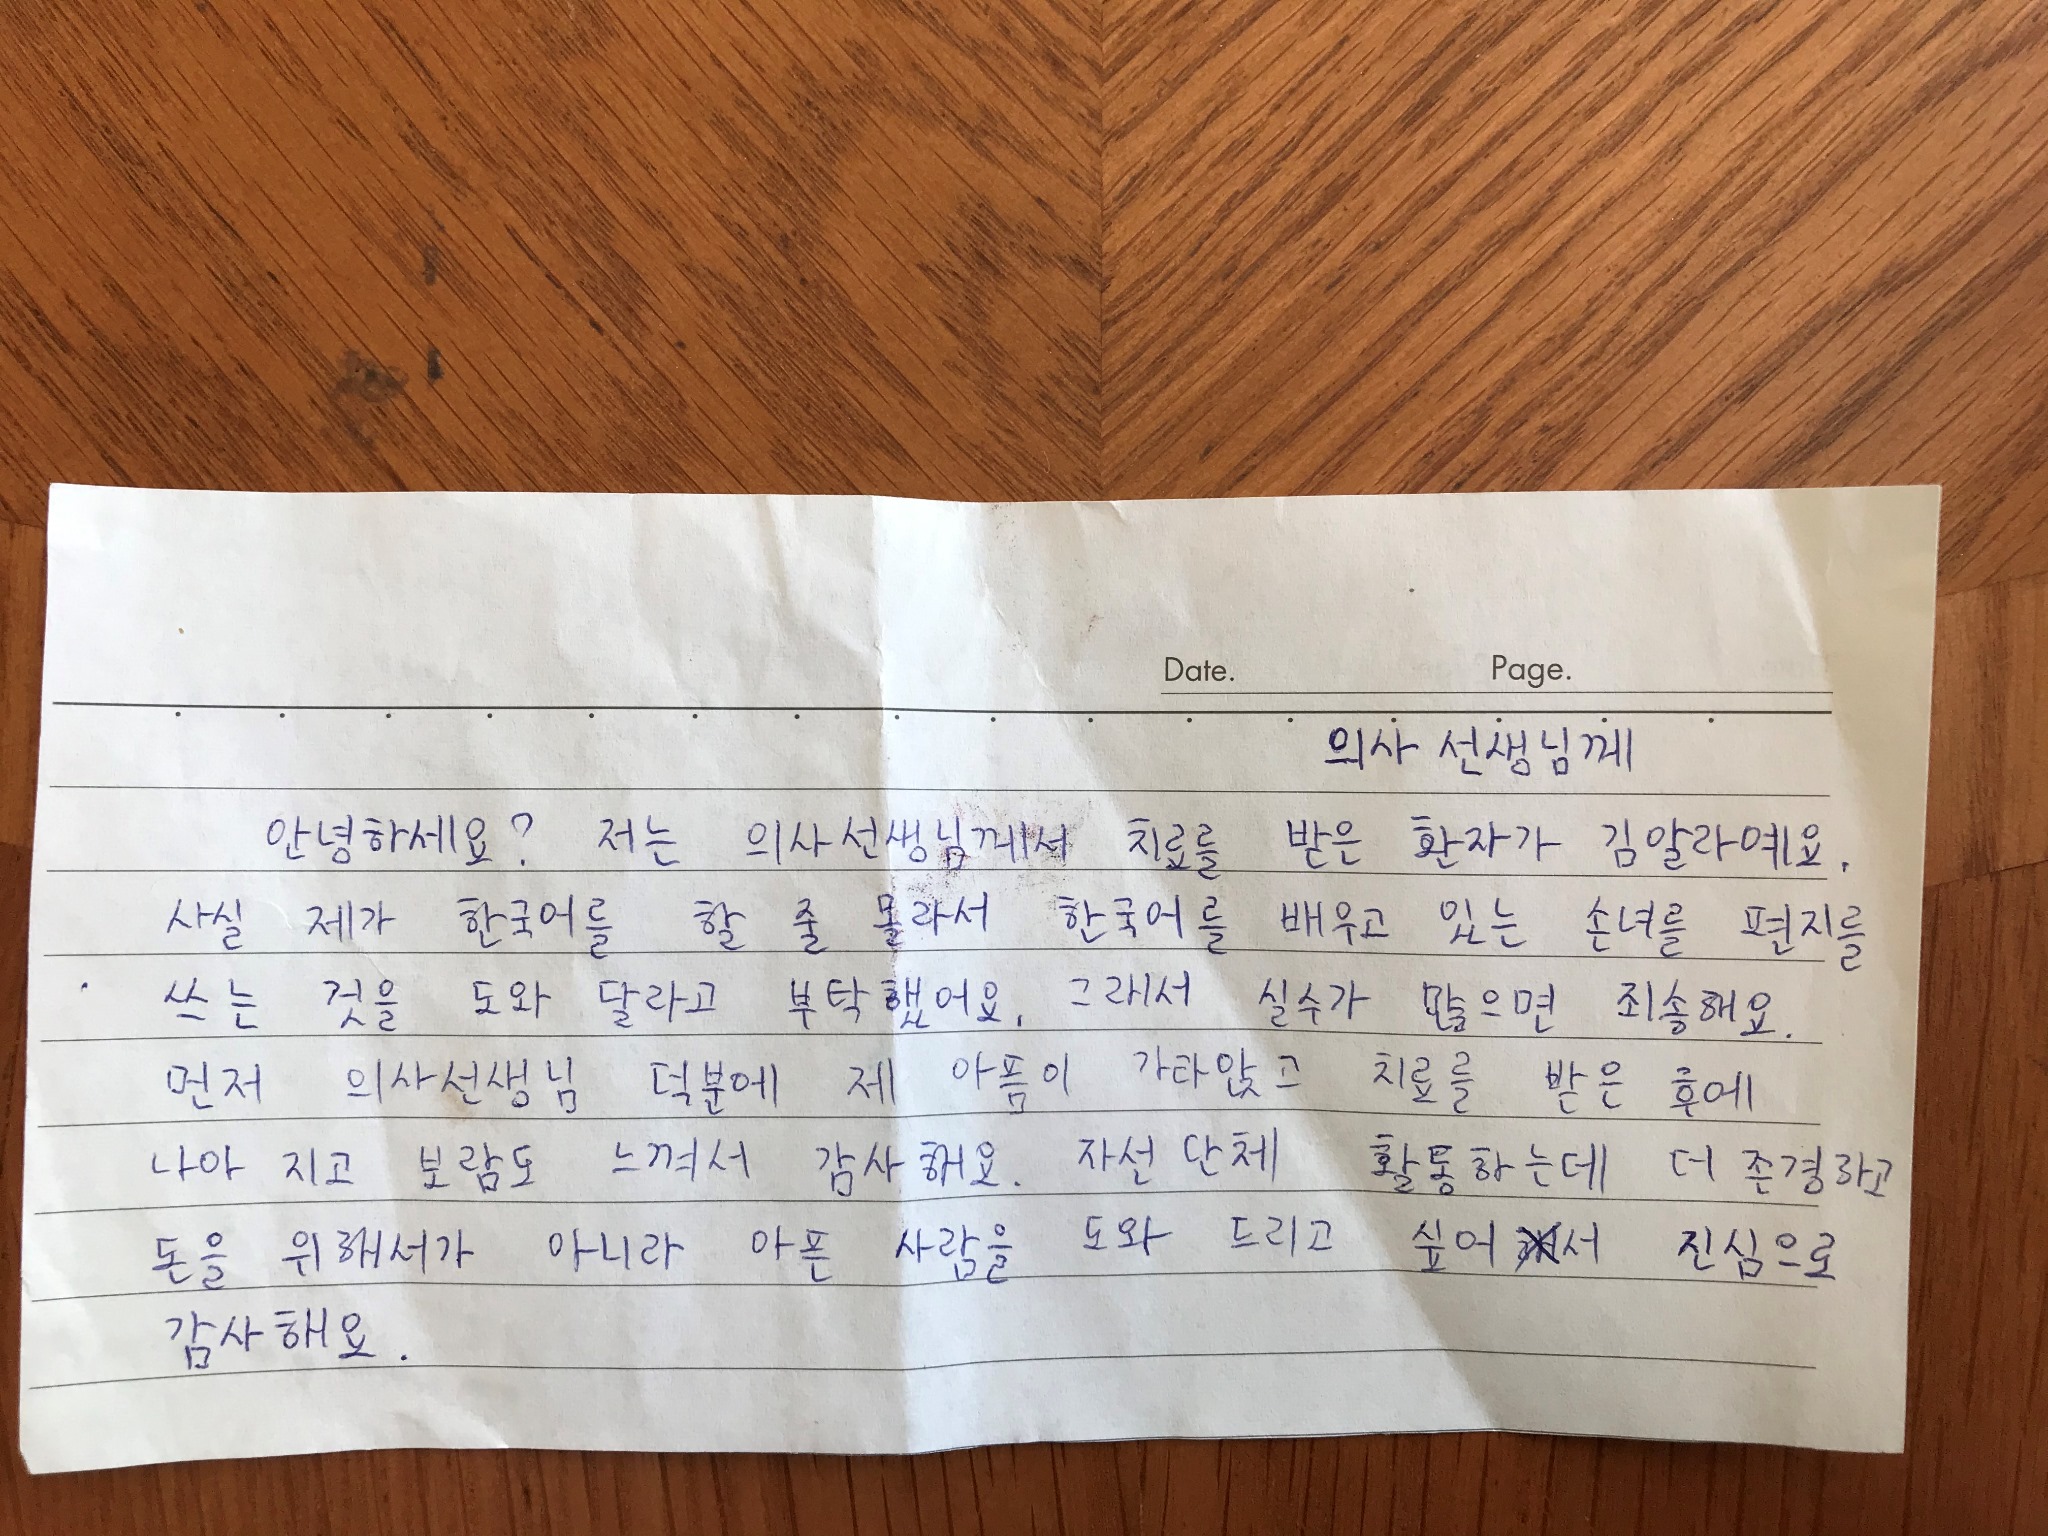 Date. Page.
의사 선생님께
안녕하세요? 저는 의사선생님께서 치료를 받은 환자가 김알라예요.
사실 제가 한국어를 할 줄 몰라서 한국어를 배우고 있는 손녀를 편지를
쓰는 것을 도와 달라고 부탁했어요. 그래서 실수가 많으면 죄송해요.
먼저 의사선생님 덕분에 제 아픔이 가타앉고 치료를 받은 후에
나아 지고 보람도 느껴서 감사해요. 자선 단체 활동하는데 더 존경하고
돈을 위해서가 아니라 아픈 사람을 도와 드리고 싶어서 진심으로
감사해요.